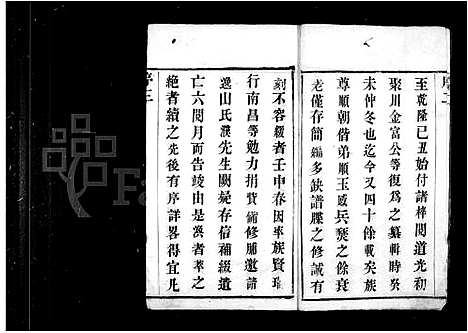 序二
至乾隆己丑始付諸梓間道光初
聚川金富公等復爲之纂輯時癸
未仲冬也迄今又四十餘載矣族
尊順朝偕弟順玉感兵燹之餘衰
老僅存簡編多缺譜牒之修誠有
刻不容緩者壬申春因率族賢瑞
行南昌等勉力捐貲備修脯邀請
逸山氏漢先生闕疑存信補綴遺
亡六閱月而告竣由是渙者萃之
絶者續之先後有序詳畧得宜凡
序三